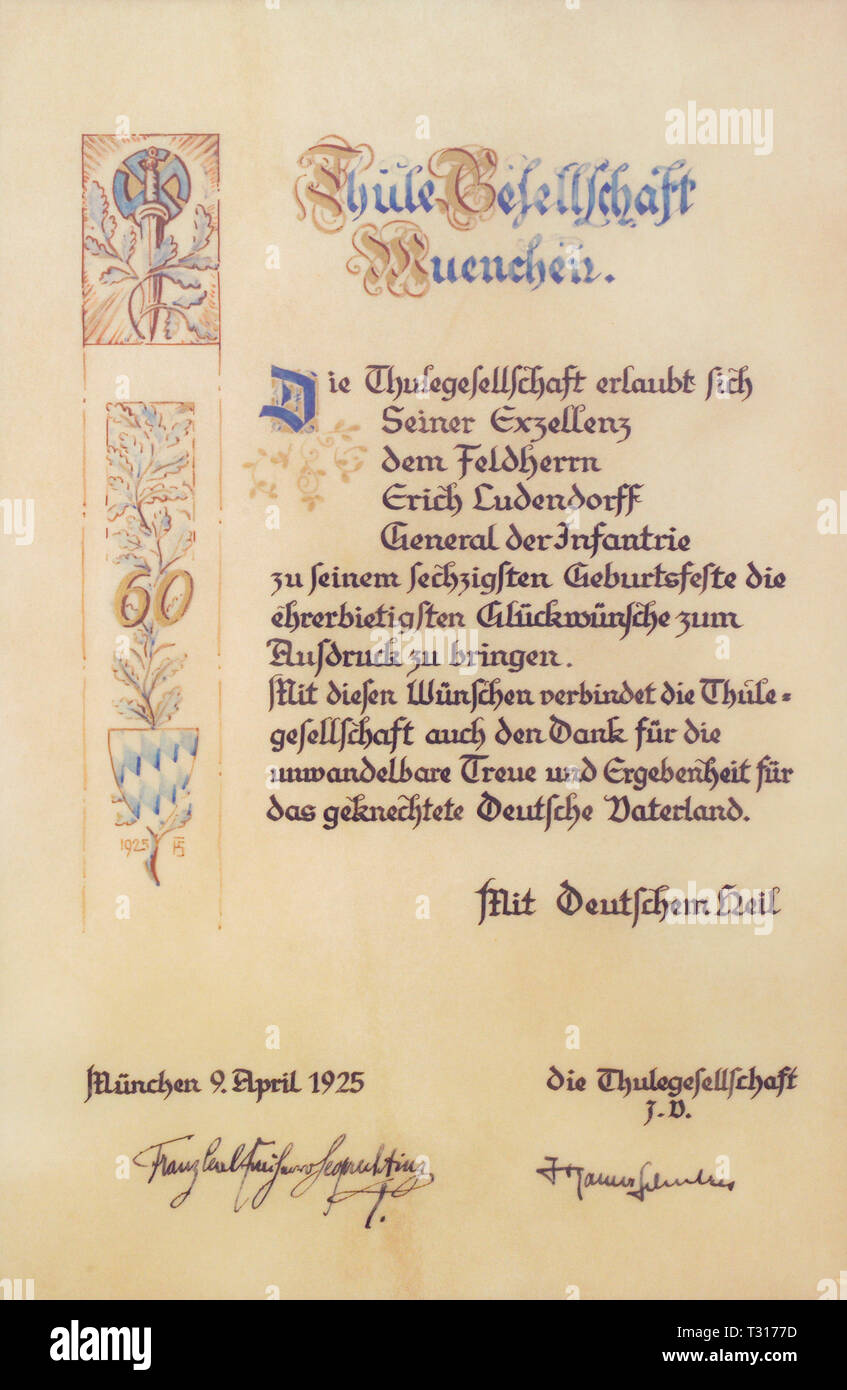 Thule Gesellschaft
Muenchen.
Die Thulegesellschaft erlaubt sich
Seiner Exzellenz
dem Feldherrn
Erich Ludendorff
General der Infantrie
zu seinem sechzigsten Geburtsfeste die
ehrerbietigsten Glückwünsche zum
Ausdruck zu bringen.
Mit diesen Wünschen verbindet die Thule=
gesellschaft auch den Dank für die
unwandelbare Treue und Ergebenheit für
das geknechtete Deutsche Vaterland.
Mit Deutschem Heil
60
1925
München 9. April 1925
die Thulegesellschaft
J.V.
Franz
alamy
alamy
Image ID: T3177D
www.alamy.com